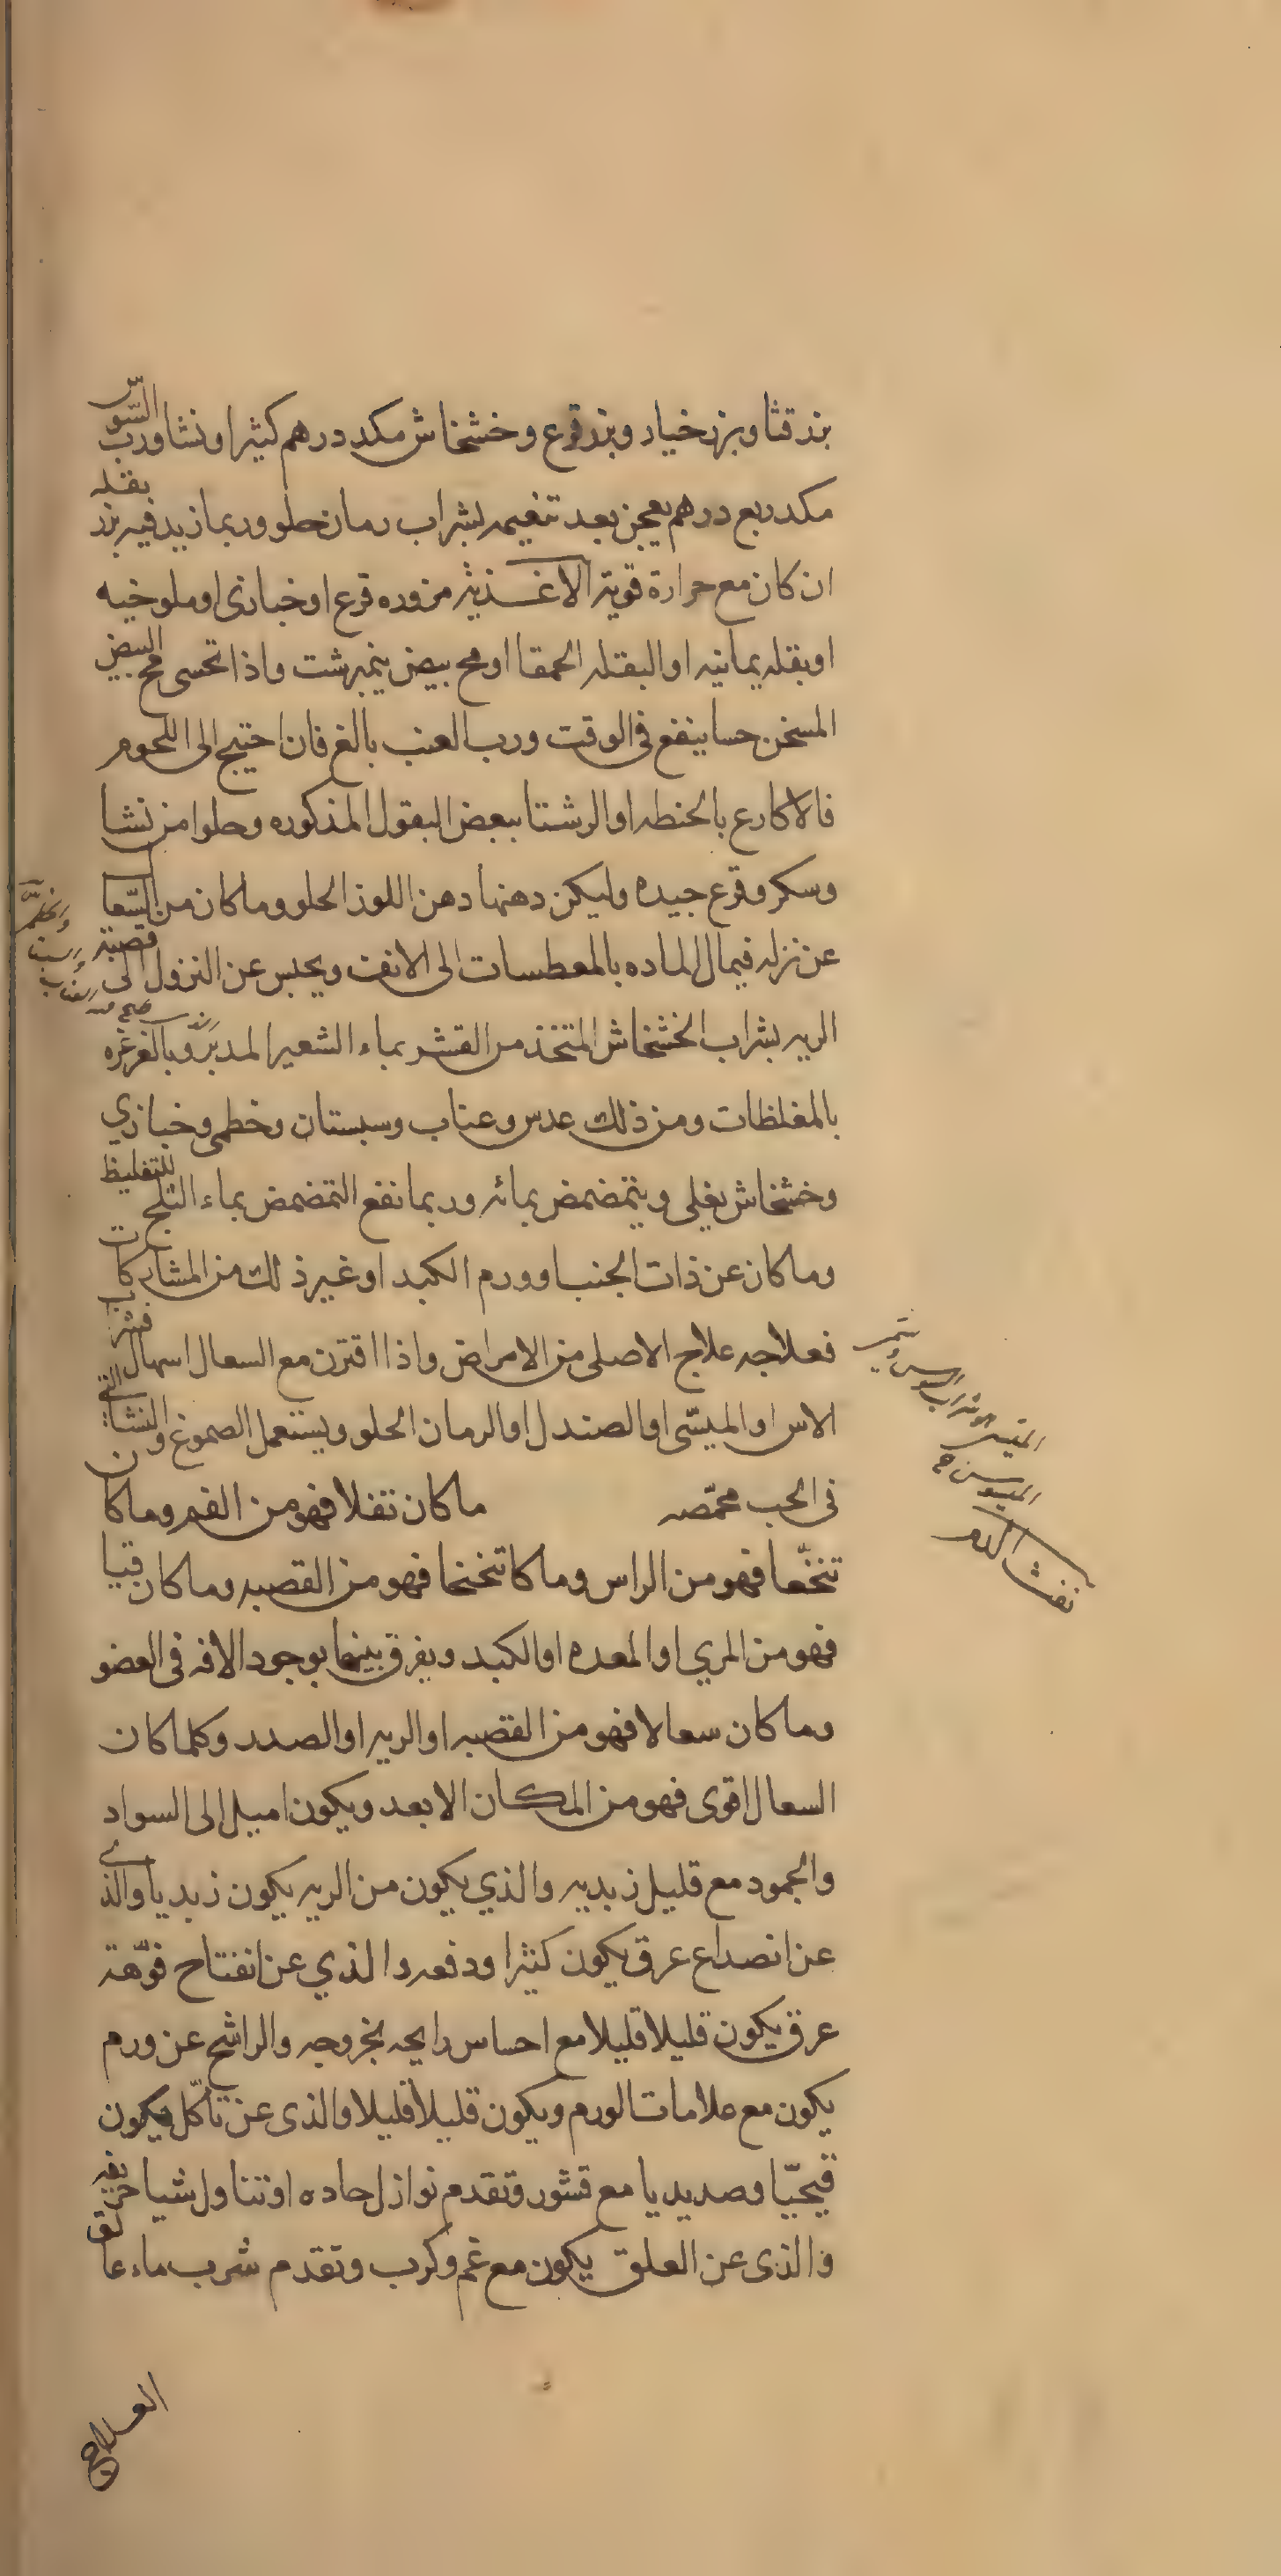 بزر قثا وبزر خيار وبزر قرع وخشخاش مكد درهم كثيرا ونشا ورب السّوس
مكد ربع درهم يعجن بعد تنعيمه بشراب رمان حلو وربما زيد فيه بزر بقله
ان كان مع حرارة قوية الاغذية مزوره قرع او خبازى او ملوخيه
او بقله يمانيه او البقله الحمقا او مح بيض نيمبرشت واذا تحسى مح البيض
المسخن حسا ينفع فى الوقت ورب العنب بالغ فان احتيج الى اللحوم
فالاكارع بالحنطه او الرشتا ببعض البقول المذكوره وحلوا من نشا
وسكر وقرع جيده وليكن دهنها دهن اللوز الحلو وما كان من السّعا
عن نزله فيمال الماده بالمعطسات الى الانف ويحبس عن النزول الى قصبة
الريه بشراب الخشخاش المتخذ من القشر بماء الشعير المدبّر وبالغرغره
بالمغلظات ومن ذلك عدس وعناب وسبستان وخطمى وخبازي
وخشخاش يغلى ويتمضمض بمائه وربما نفع التمضمض بماء الثلج للتغليظ
وما كان عن ذات الجنب او ورم الكبد او غير ذلك من المشاركات
فعلاجه علاج الاصلى من الامراض واذا اقترن مع السعال اسهال فشراب
الاس او الميسّى او الصندل او الرمان الحلو ويستعمل الصموغ والنشا التى
فى الحب محمّصه ما كان تفلا فهو من الفم وما كان
تنخّعا فهو من الراس وما كا تنخنخا فهو من القصبه وما كان قيا
فهو من المري او المعده او الكبد ويفرق بينها بوجود الافه فى العضو
وما كان سعالا فهو من القصبه او الريه او الصدر وكلما كان
السعال اقوى فهو من المكان الابعد ويكون اميل الى السواد
والجمود مع قليل زبديه والذي يكون من الريه يكون زبديا والذي
عن انصداع عرق يكون كثيرا ودفعه والذي عن انفتاح فوّهة
عرق يكون قليلا قليلا مع احساس رايحه بخروجه والراشح عن ورم
يكون مع علامات الورم ويكون قليلا قليلا والذى عن تاكّل فيكون
قيحيّا وصديديا مع قشور وتقدم نوازل حاده او تناول شيا حريفه
والذى عن العلق يكون مع غم وكرب وتقدم شرب ماء عالق
نفث الدم
العلاج